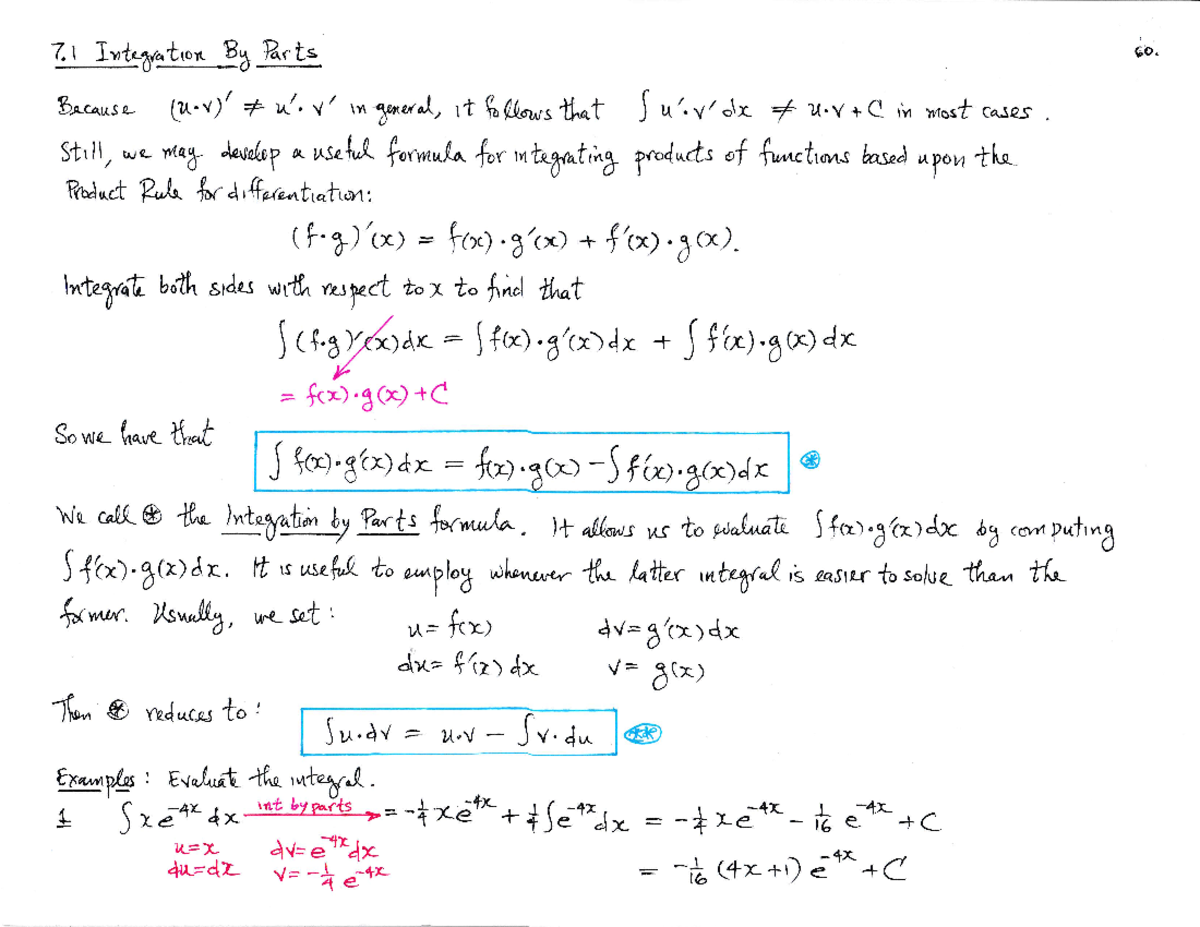 7.1 Integration By Parts
60.
Because (u·v)′ ≠ u′·v′ in general, it follows that ∫ u′·v′ dx ≠ u·v + C in most cases.
Still, we may develop a useful formula for integrating products of functions based upon the
Product Rule for differentiation:
(f·g)′(x) = f(x)·g′(x) + f′(x)·g(x).
Integrate both sides with respect to x to find that
∫(f·g)′(x)dx = ∫f(x)·g′(x)dx + ∫f′(x)·g(x)dx
= f(x)·g(x)+C
So we have that
∫ f(x)·g′(x)dx = f(x)·g(x) − ∫f′(x)·g(x)dx ⊛
We call ⊛ the Integration by Parts formula. It allows us to evaluate ∫f(x)·g′(x)dx by computing
∫f′(x)·g(x)dx. It is useful to employ whenever the latter integral is easier to solve than the
former. Usually, we set:
u = f(x) dv = g′(x)dx
du = f′(x) dx v = g(x)
Then ⊛ reduces to:
∫u·dv = u·v − ∫v·du **
Examples: Evaluate the integral.
1 ∫xe^{-4x} dx int by parts → = -1/4 xe^{-4x} + 1/4 ∫e^{-4x}dx = -1/4 xe^{-4x} - 1/16 e^{-4x} + C
u=x dv=e^{-4x}dx
du=dx v=-1/4 e^{-4x}
= -1/16 (4x+1) e^{-4x} + C